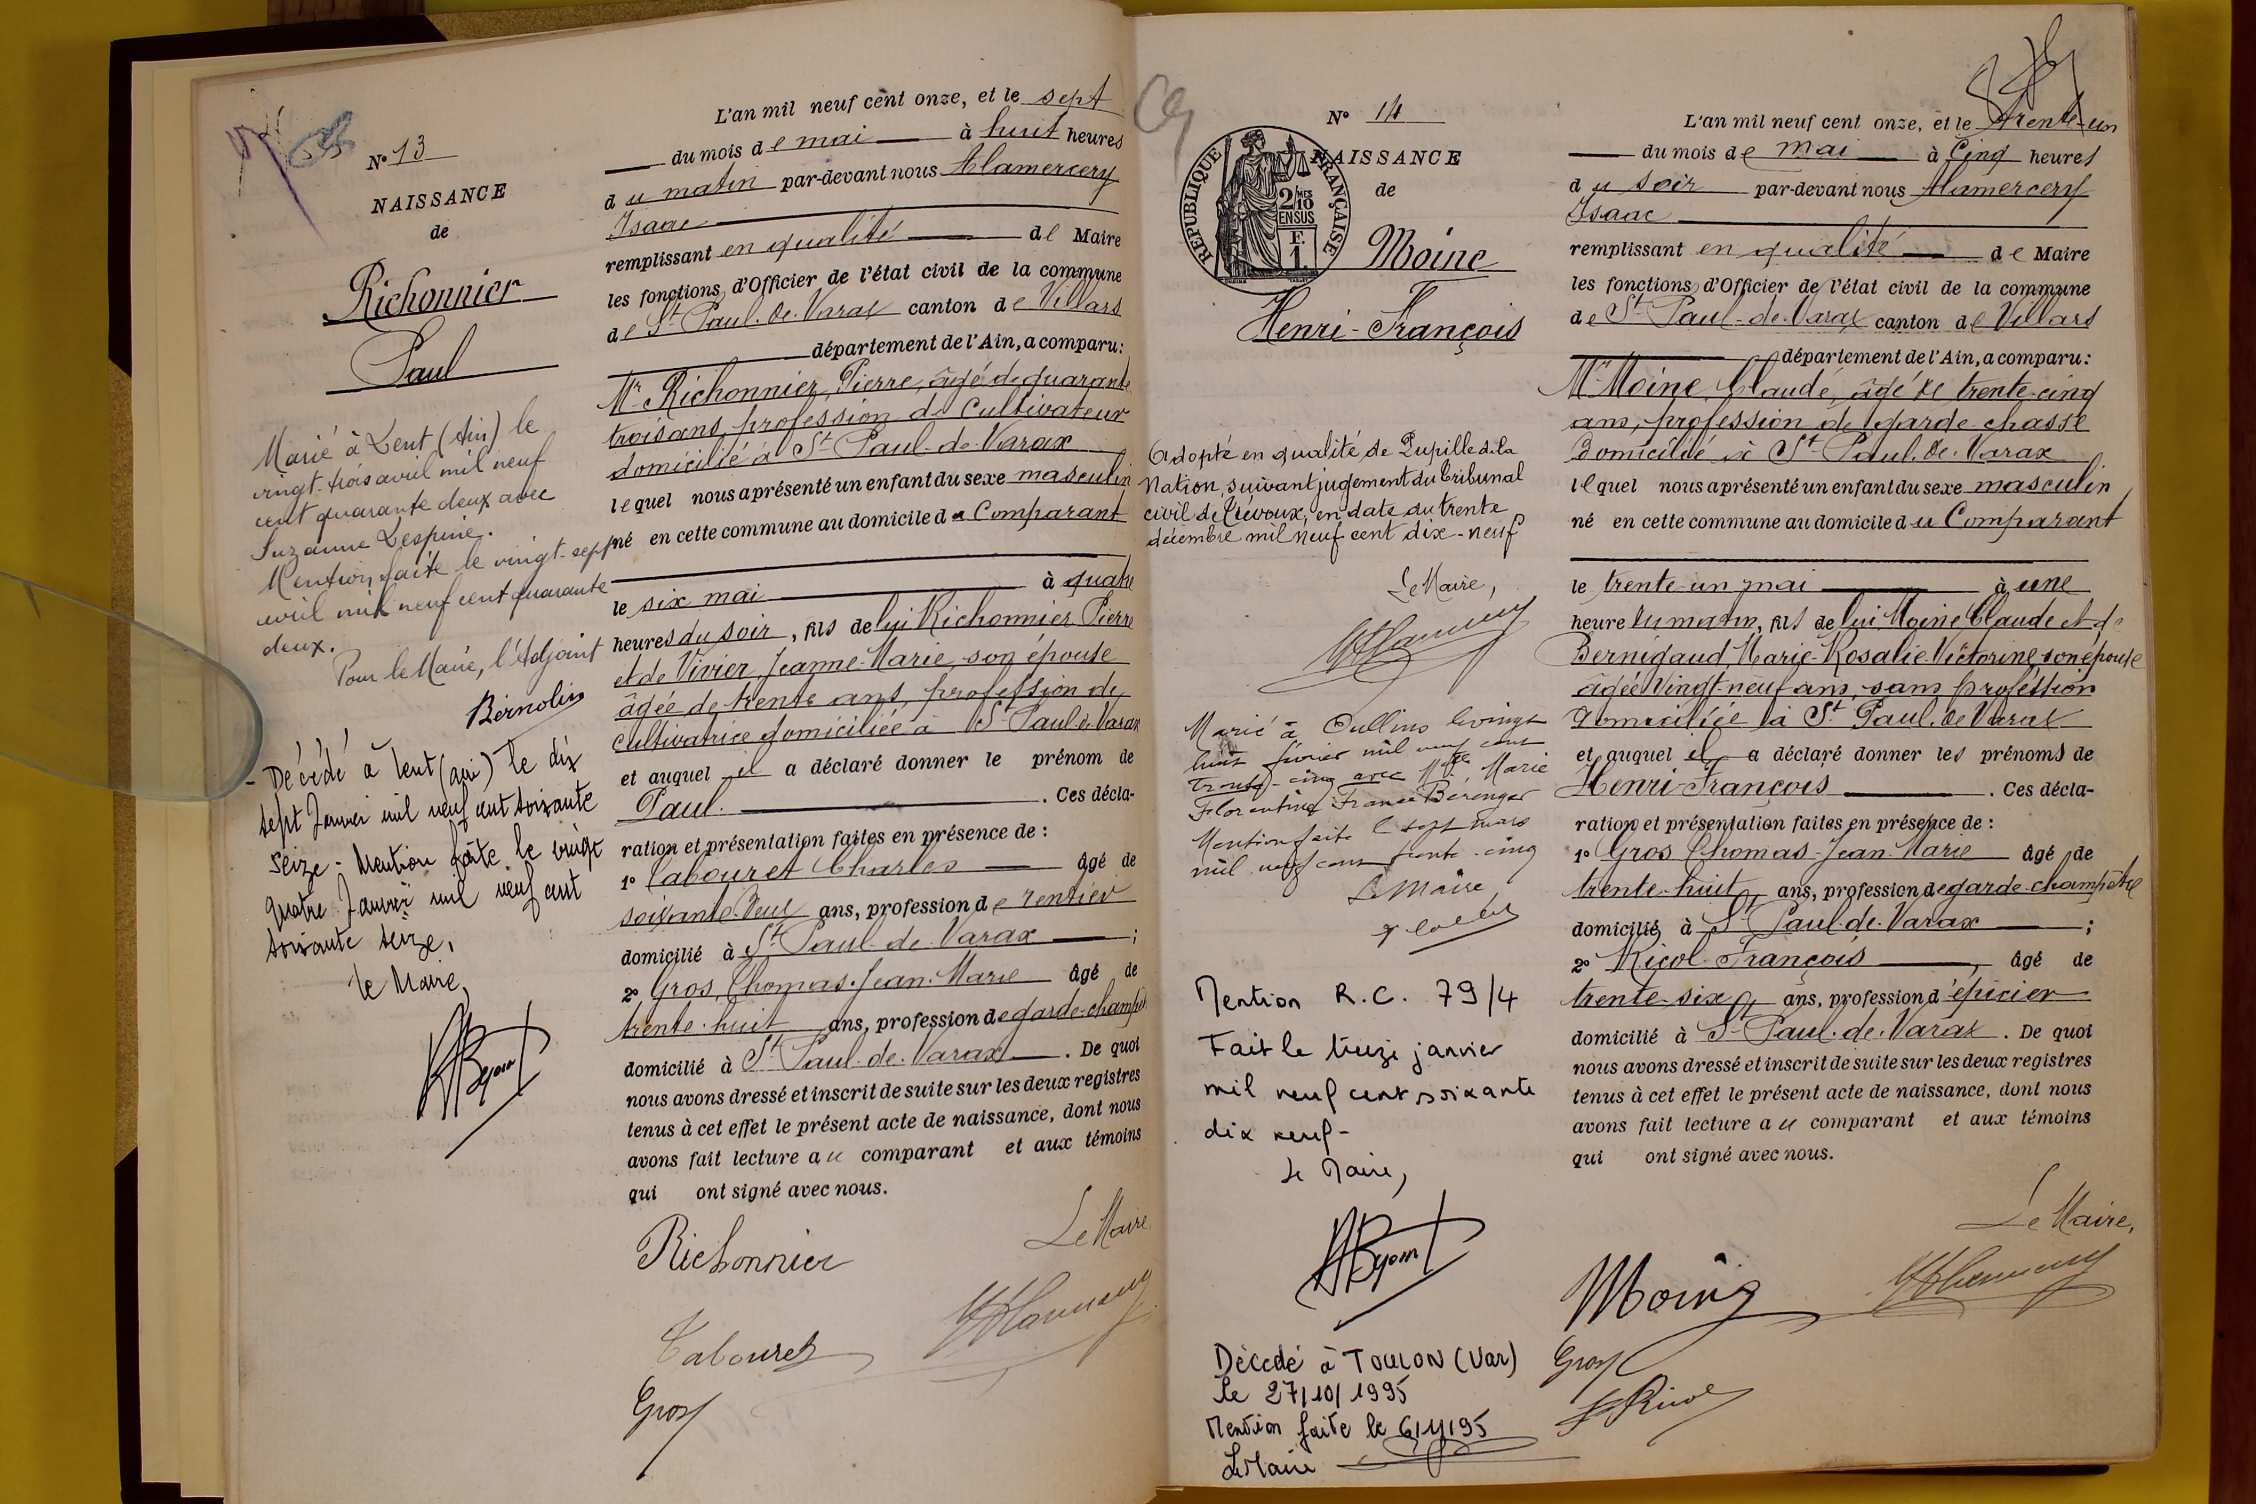 N° 13
NAISSANCE
de
Richonnier
Paul
Marié à Lent (Ain) le
vingt-trois avril mil neuf
cent quarante deux avec
Suzanne Lespine.
Mention faite le vingt-sept
avril mil neuf cent quarante
deux.
Pour le Maire, l'Adjoint
Bernolin
- Décédé à Lent (ain) le dix
sept Janvier mil neuf cent soixante
seize - Mention faite le vingt
quatre Janvier mil neuf cent
soixante seize.
le Maire,
L'an mil neuf cent onze, et le sept
du mois de mai à huit heures
du matin par-devant nous Clamercery
Isaac
remplissant en qualité de Maire
les fonctions d'Officier de l'état civil de la commune
de St Paul-de-Varax canton de Villars
département de l'Ain, a comparu:
Mr Richonnier, Pierre, âgé de quarante
trois ans, profession de cultivateur
domicilié à St Paul-de-Varax
lequel nous a présenté un enfant du sexe masculin
né en cette commune au domicile du Comparant
le six mai à quatre
heures du soir, fils de lui Richonnier Pierre
et de Vivier, Jeanne-Marie, son épouse
âgée de trente ans, profession de
cultivatrice domiciliée à St Paul-de-Varax
et auquel il a déclaré donner le prénom de
Paul. Ces décla-
ration et présentation faites en présence de :
1° Tabouret Charles âgé de
soixante-deux ans, profession de rentier
domicilié à St Paul-de-Varax ;
2° Gros, Thomas-Jean-Marie âgé de
trente-huit ans, profession de garde-champêtre
domicilié à St Paul-de-Varax. De quoi
nous avons dressé et inscrit de suite sur les deux registres
tenus à cet effet le présent acte de naissance, dont nous
avons fait lecture au comparant et aux témoins
qui ont signé avec nous.
Le Maire,
Richonnier
Tabouret
Gros
N° 14
NAISSANCE
de
RÉPUBLIQUE FRANÇAISE
2/10 MES
EN SUS
F.
1.
Moine
Henri-François
Adopté en qualité de Pupille de la
Nation, suivant jugement du Tribunal
civil de Trévoux, en date du trente
décembre mil neuf cent dix-neuf
Le Maire,
Marié à Oullins le vingt
huit février mil neuf cent
trente-cinq avec Mlle Marie
Florentine France Bérenger
Mention faite le sept mars
mil neuf cent trente-cinq
Le Maire
Mention R.C. 79/4
Fait le treize janvier
mil neuf cent soixante
dix neuf -
Le Maire,
Décédé à TOULON (Var)
le 27/10/1995
Mention faite le 6/11/95
Le Maire
L'an mil neuf cent onze, et le trente-un
du mois de mai à cinq heures
du soir par-devant nous Clamercery
Isaac
remplissant en qualité de Maire
les fonctions d'Officier de l'état civil de la commune
de St Paul-de-Varax canton de Villars
département de l'Ain, a comparu:
Mr Moine, Claude, âgé de trente-cinq
ans, profession de garde chasse
domicilié à St Paul-de-Varax
lequel nous a présenté un enfant du sexe masculin
né en cette commune au domicile du Comparant
le trente-un mai à une
heure du matin, fils de lui Moine Claude et de
Bernigaud, Marie-Rosalie-Victorine son épouse
âgée vingt-neuf ans, sans profession
domiciliée à St Paul-de-Varax
et auquel il a déclaré donner les prénoms de
Henri-François. Ces décla-
ration et présentation faites en présence de :
1° Gros Thomas-Jean-Marie âgé de
trente-huit ans, profession de garde-champêtre
domicilié à St Paul-de-Varax ;
2° Ricol François, âgé de
trente-six ans, profession d'épicier
domicilié à St Paul-de-Varax. De quoi
nous avons dressé et inscrit de suite sur les deux registres
tenus à cet effet le présent acte de naissance, dont nous
avons fait lecture au comparant et aux témoins
qui ont signé avec nous.
Le Maire,
Moine
Gros
F Ricol